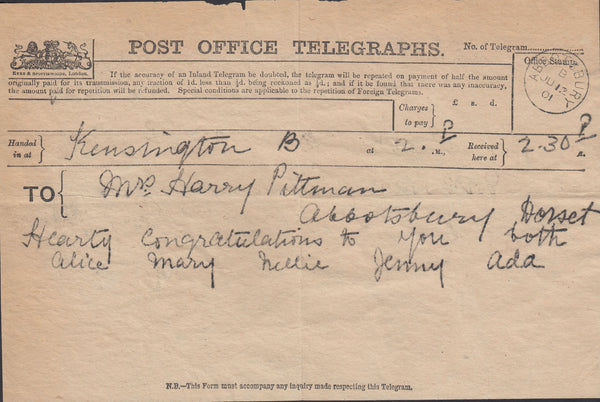 POST OFFICE TELEGRAPHS.
No. of Telegram
If the accuracy of an Inland Telegram be doubted, the telegram will be repeated on payment of half the amount
originally paid for its transmission, any fraction of ½d. less than ½d. being reckoned as ½d.; and if it be found that there was any inaccuracy,
the amount paid for repetition will be refunded. Special conditions are applicable to the repetition of Foreign Telegrams.
Office Stamp.
ABBOTSBURY
B
JU 12
01
Charges to pay } £ s. d.
Handed in at } Kensington B at 2. P M., Received here at } 2.30 P
TO { Mrs Harry Pittman
Abbotsbury Dorset
Hearty congratulations to you both
Alice Mary Nellie Jenny Ada
N.B.—This Form must accompany any inquiry made respecting this Telegram.